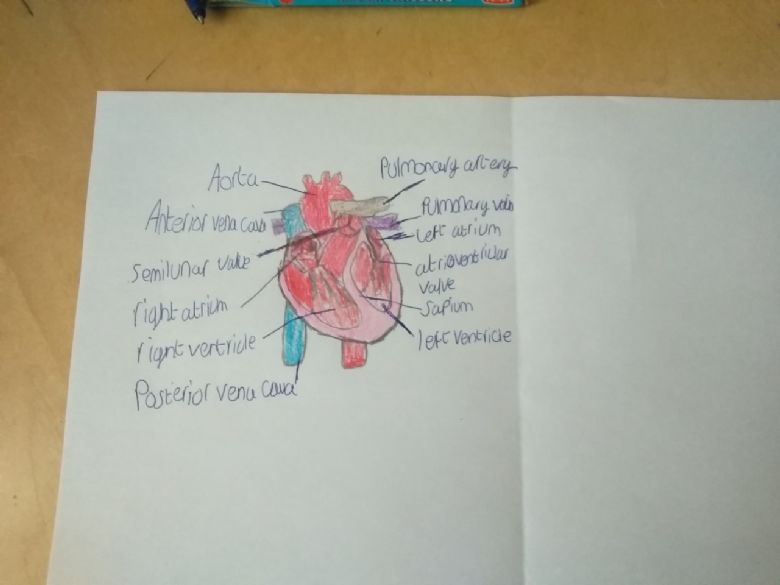 Aorta
Pulmonary artery
Anterior vena cava
Pulmonary vein
left atrium
semilunar valve
atrioventricular
valve
right atrium
Sapium
right ventricle
left ventricle
Posterior vena cava